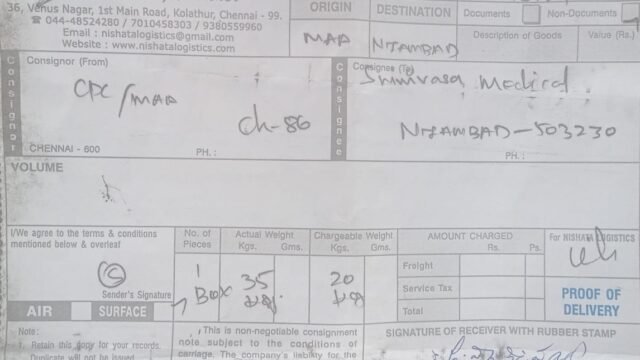 36, Venus Nagar, 1st Main Road, Kolathur, Chennai - 99.
☎ 044-48524280 / 7010458303 / 9380559960
Email : nishatalogistics@gmail.com
Website : www.nishatalogistics.com
ORIGIN
MAA
DESTINATION
NIZAMBAD
Documents
Non-Documents
Description of Goods
Value (Rs.)
Consignor
Consignor (From)
CPC/MAA
Ch-86
CHENNAI - 600
PH. :
Consignee
Consignee (To)
Srinivasa Medical
NIZAMBAD-503230
PH. :
VOLUME
I/We agree to the terms & conditions
mentioned below & overleaf
Sender's Signature
AIR
SURFACE
No. of
Pieces
1
Box
Actual Weight
Kgs. Gms.
35
kg.
Chargeable Weight
Kgs. Gms.
20
kg
AMOUNT CHARGED
Rs. Ps.
Freight
Service Tax
Total
For NISHATA LOGISTICS
PROOF OF
DELIVERY
Note :
1. Retain this copy for your records.
Duplicate will not be issued
This is non-negotiable consignment
note subject to the conditions of
carriage. The company's liability for the
SIGNATURE OF RECEIVER WITH RUBBER STAMP